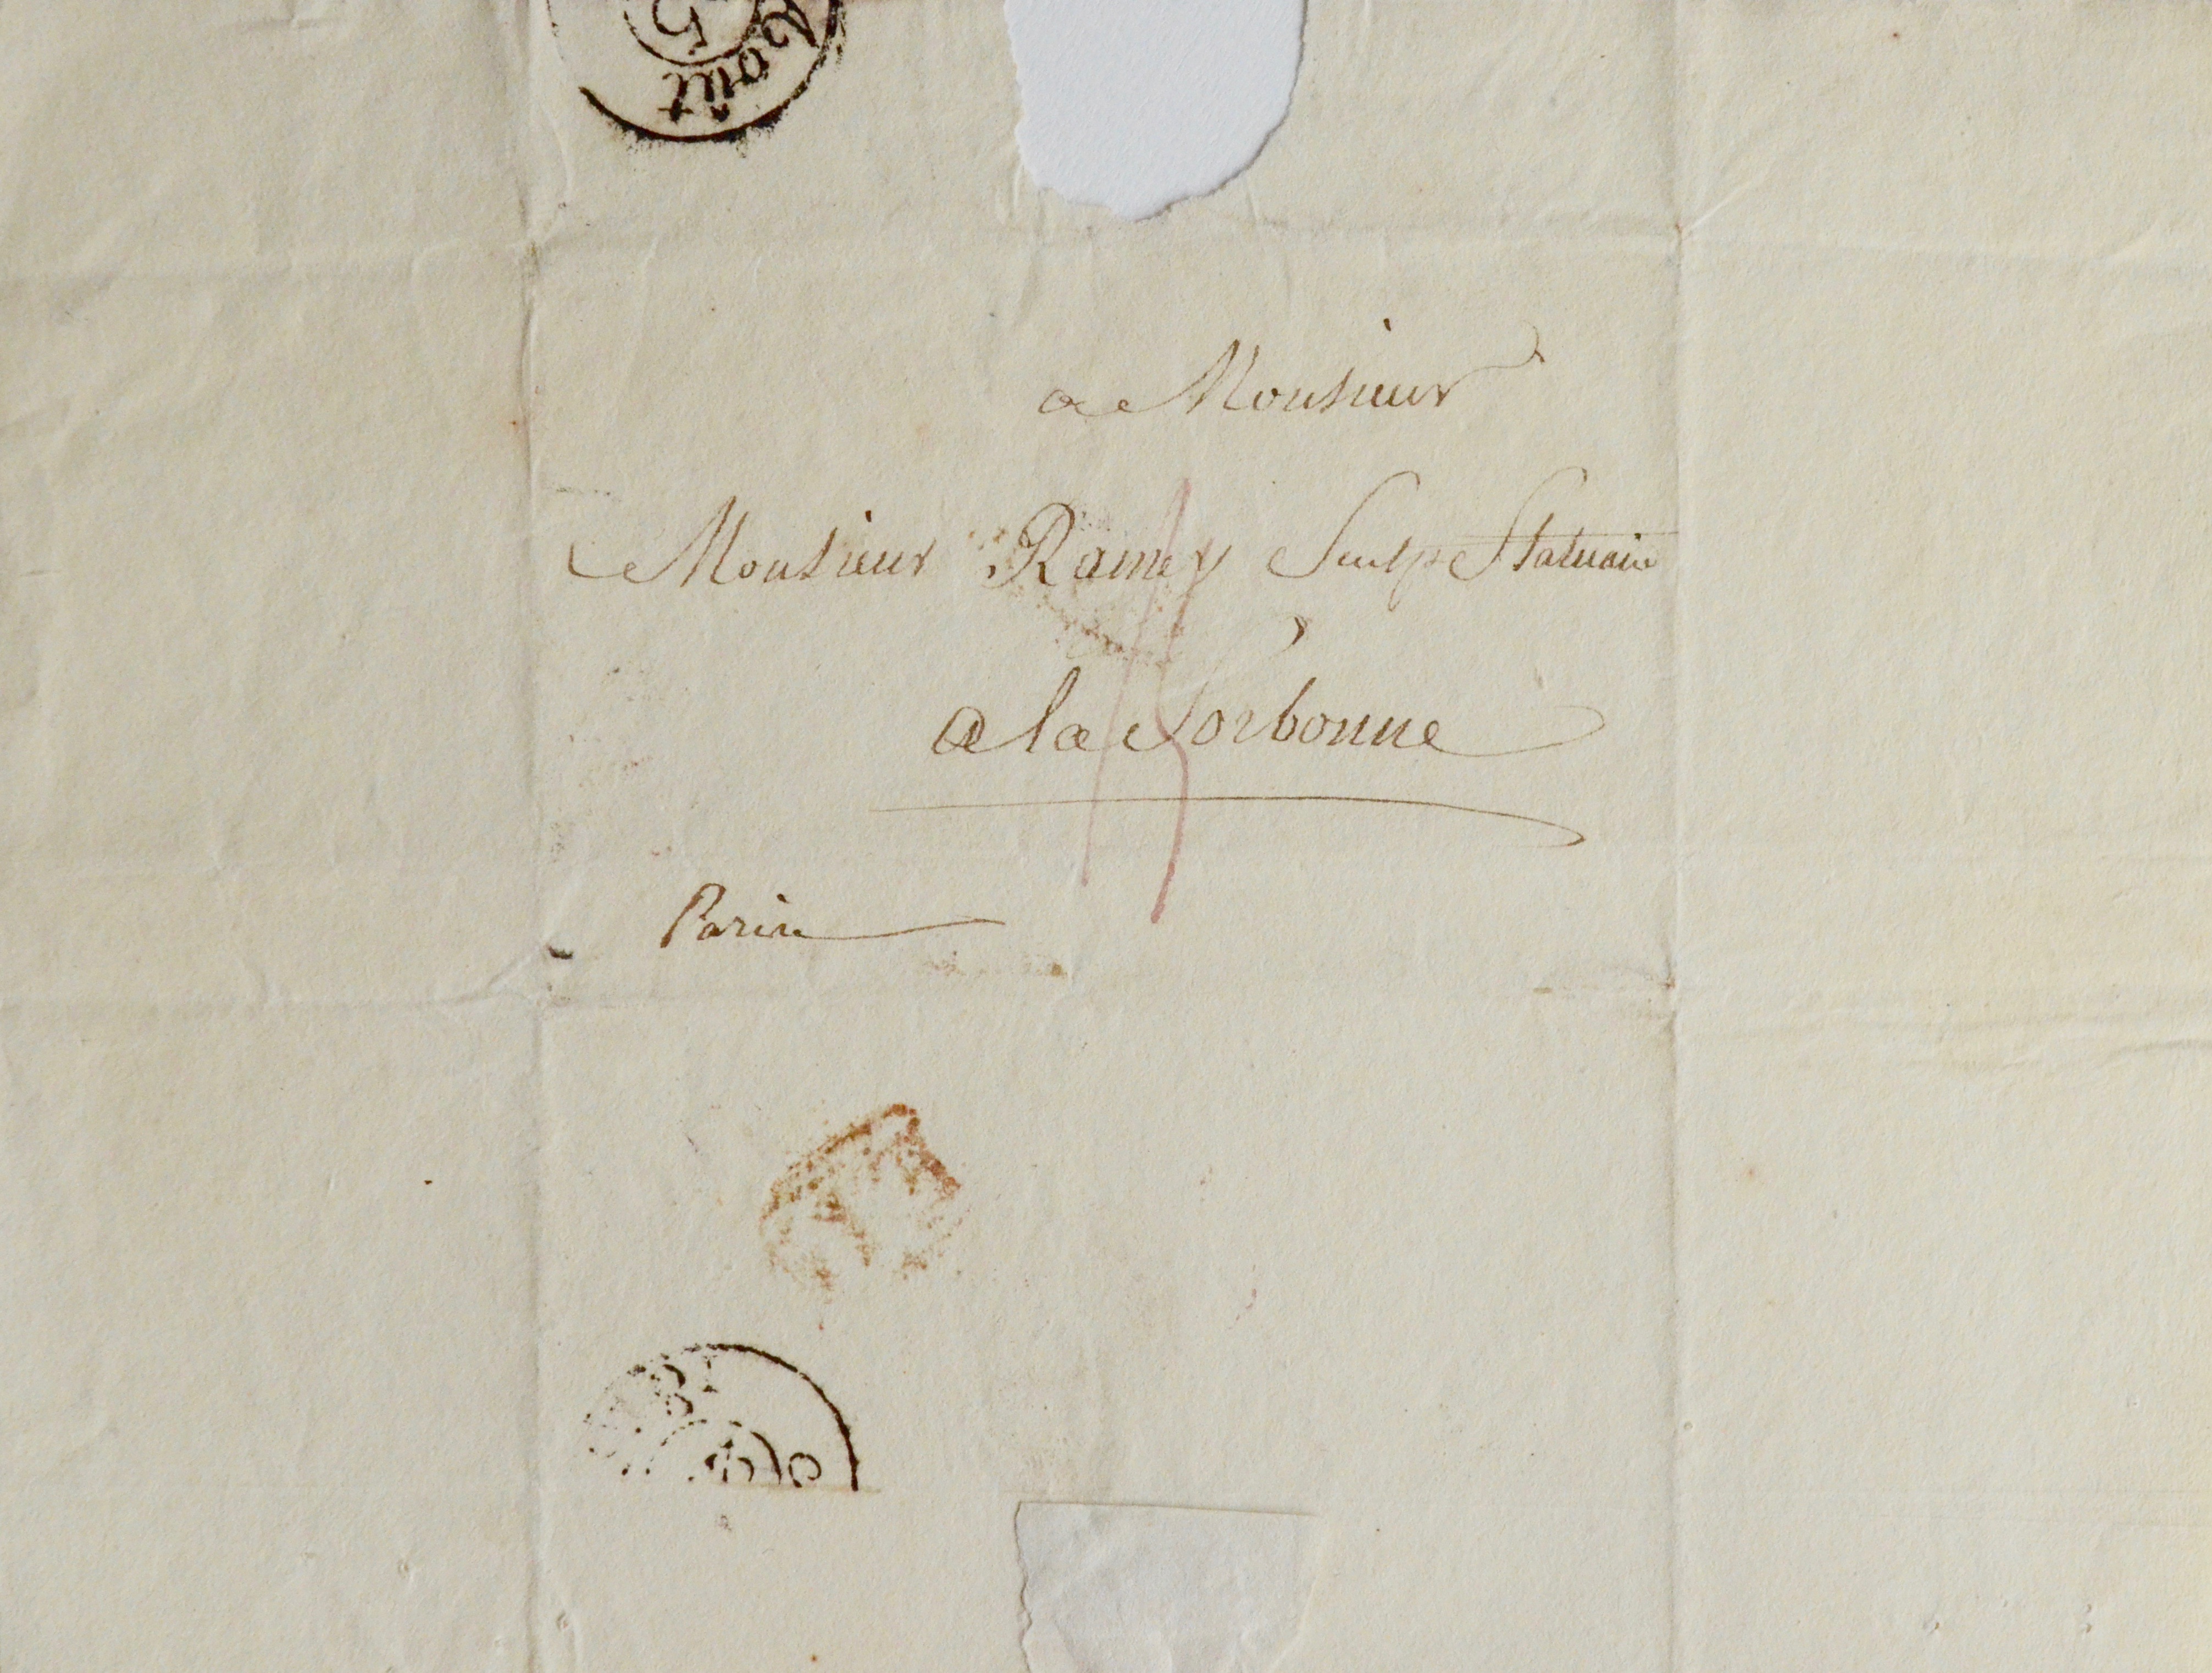 Août
5
a Monsieur
Monsieur Ramey Sculp Statuaire
a la Sorbonne
Paris